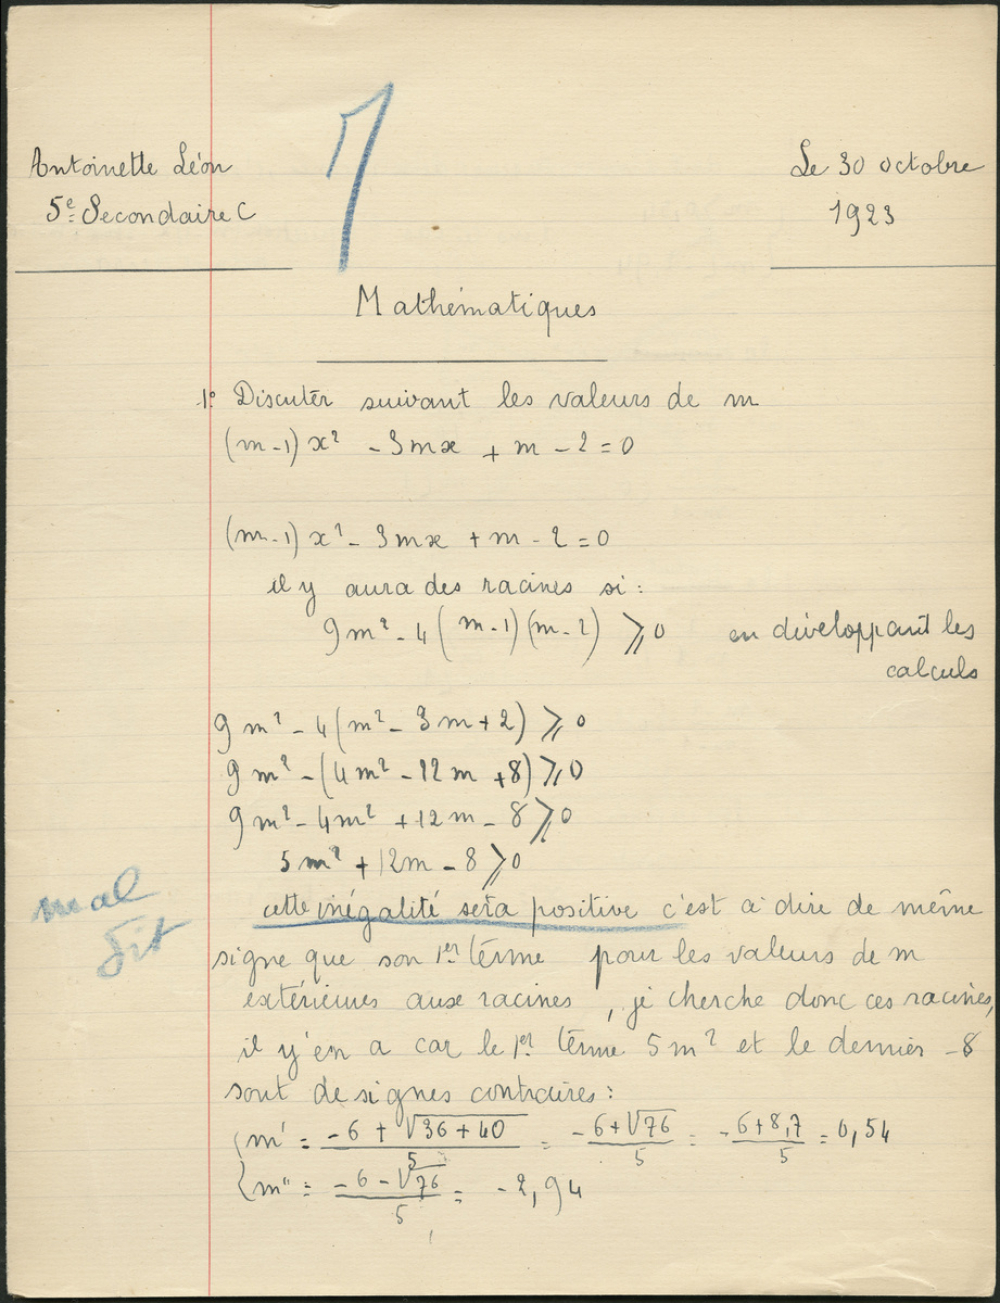 7
Antoinette Léon
5e Secondaire C
Le 30 octobre
1923
Mathématiques
1° Discuter suivant les valeurs de m
(m-1)x² - 3mx + m - 2 = 0
(m-1)x² - 3mx + m - 2 = 0
il y aura des racines si :
9m² - 4((m-1)(m-2) ⩾ 0 en développant les
calculs
9m² - 4(m² - 3m + 2) ⩾ 0
9m² - (4m² - 12m + 8) ⩾ 0
9m² - 4m² + 12m - 8 ⩾ 0
5m² + 12m - 8 ⩾ 0
mal
dit
cette inégalité sera positive c'est à dire de même
signe que son 1er terme pour les valeurs de m
extérieures aux racines, je cherche donc ces racines,
il y'en a car le 1er terme 5m² et le dernier -8
sont de signes contraires :
{ m' = (-6 + √36+40)/5 = (-6+√76)/5 = (-6+8,7)/5 = 0,54
{ m" = (-6-√76)/5 = -2,94